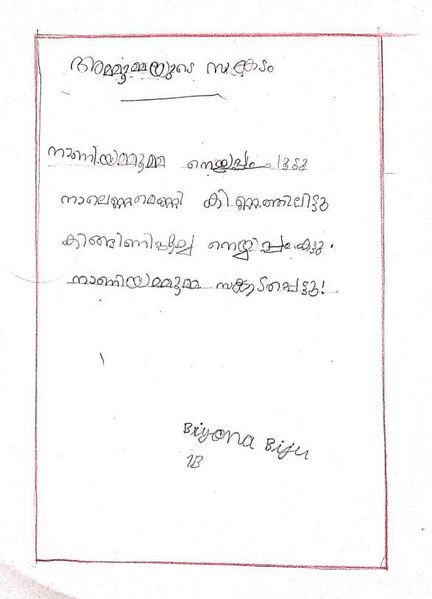 അമ്മൂമ്മയുടെ സങ്കടം
നാണിയമ്മൂമ്മ നെയ്യപ്പം ചുട്ടു
നാലെണ്ണമെണ്ണി കിണ്ണത്തിലിട്ടു
കിങ്ങിണിപ്പൂച്ച നെയ്യപ്പം കട്ടു.
നാണിയമ്മൂമ്മ സങ്കടപ്പെട്ടു!
Briyona Biju
1B